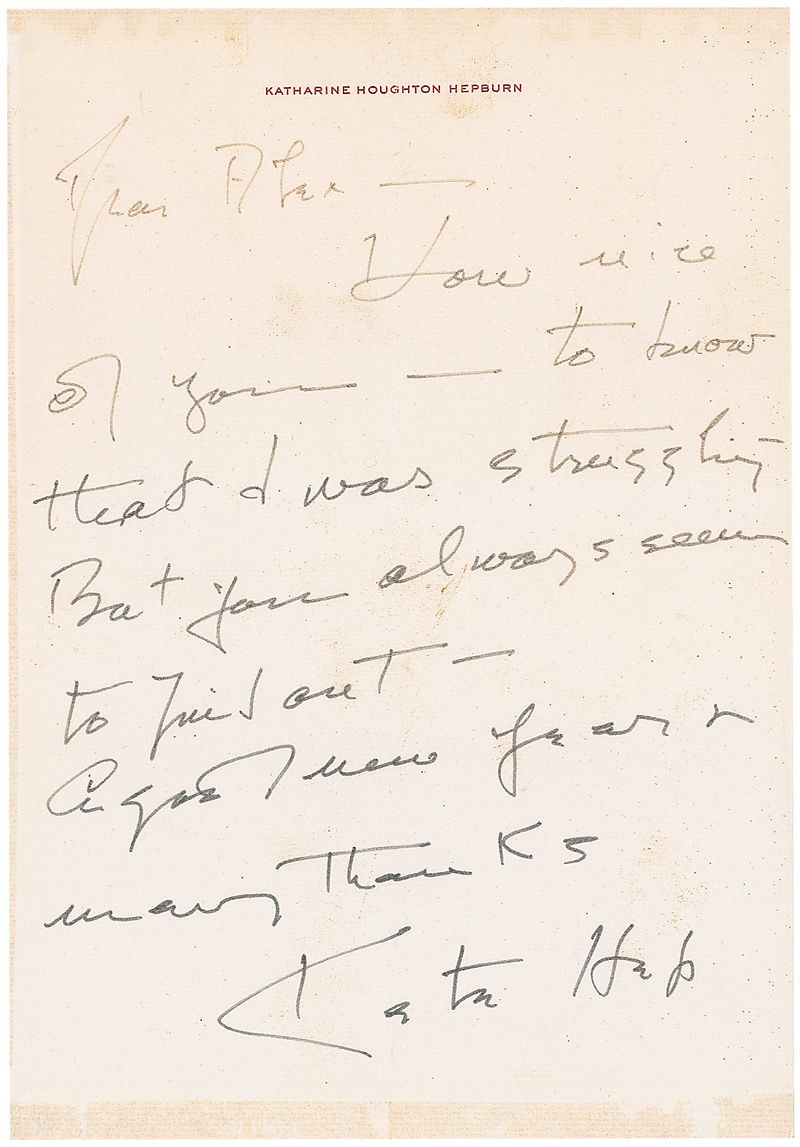 KATHARINE HOUGHTON HEPBURN
Dear Alex —
How nice
of you — to know
that I was struggling
But you always seem
to find out —
A good new year &
many thanks
Kate Hep